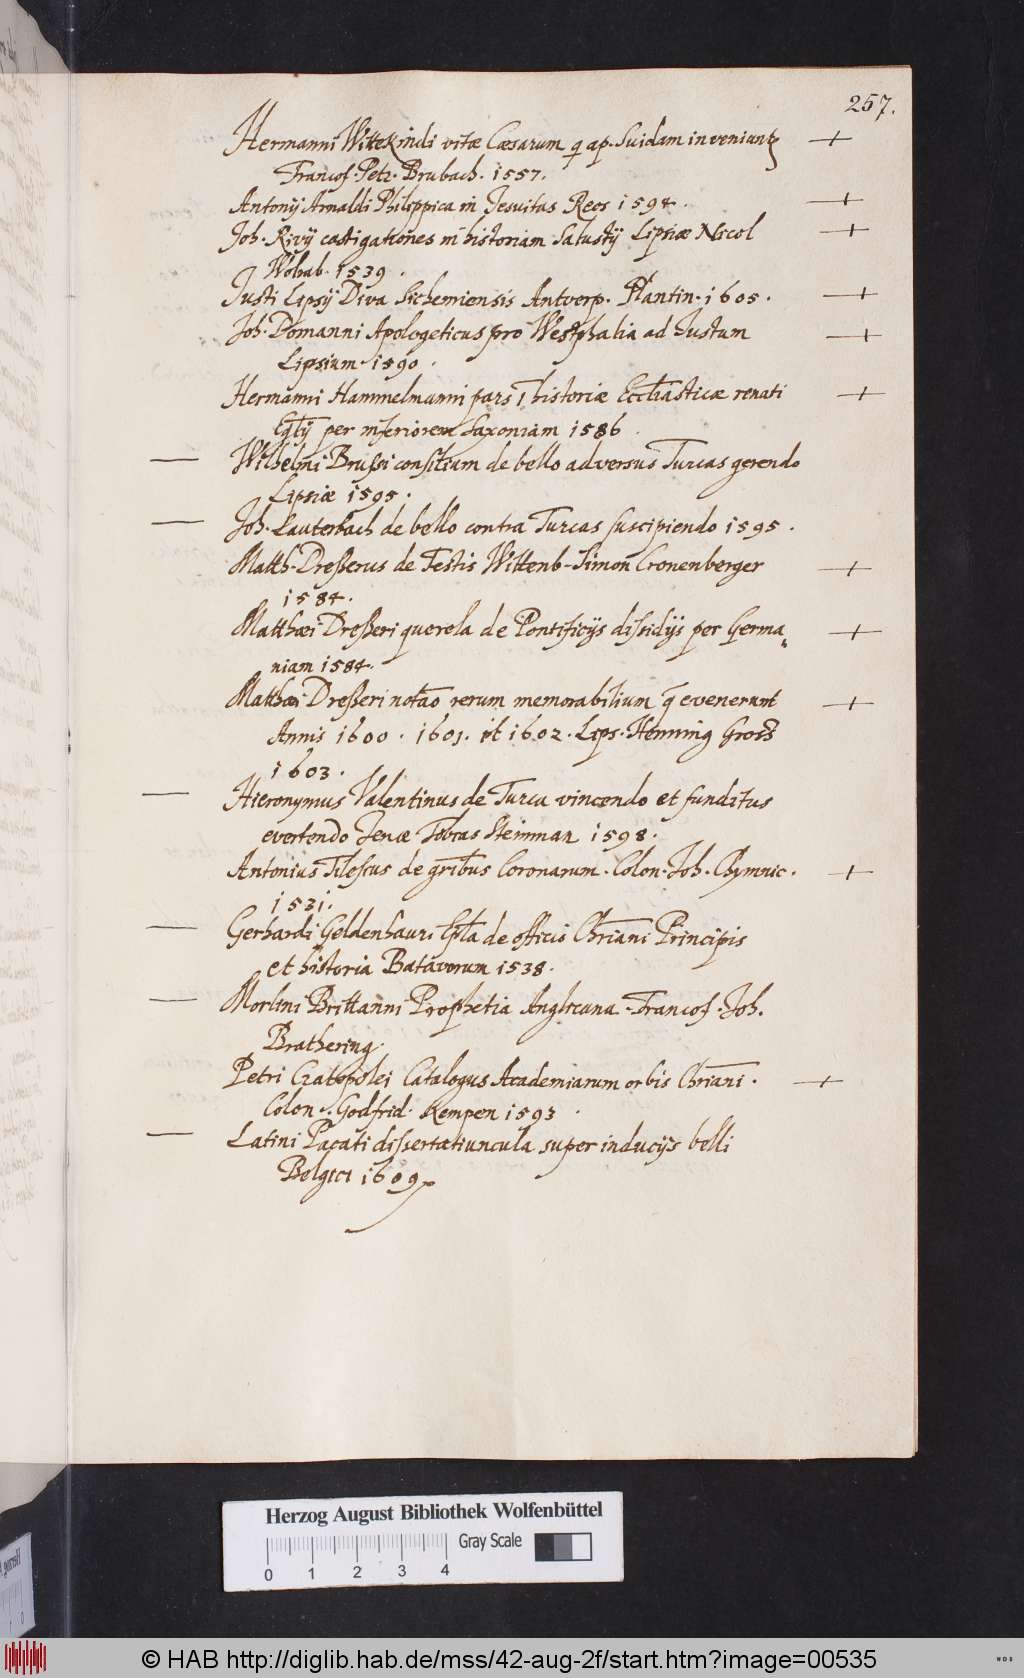 257.
Hermanni Wittekindi vitæ Cæsarum q ap. Suidam inveniunt
Francof. Petr. Brubach. 1557.
Antonij Arnaldi Philippica in Jesuitas Reos 1594.
Joh. Rivij castigationes in historiam Salustij Lipsiæ Nicol
Wolrab. 1539.
Justi Lipsij Diva Sichemiensis Antverp. Plantin. 1605.
Joh. Domanni Apologeticus pro Westphalia ad Justum
Lipsium. 1590.
Hermanni Hammelmanni pars 1 historiæ Ecclīasticæ renati
per inferiorem Saxoniam 1586
Wilhelmi Brussi consilium de bello adversus Turcas gerendo
Lipsiæ 1595.
Joh. Lauterbach de bello contra Turcas suscipiendo 1595.
Matth. Dreßerus de Festis Wittenb. Simon Cronenberger
1584.
Matthæi Dreßeri querela de Pontificijs dissidijs per Germa„
niam 1584.
Matthæi Dreßeri notāo rerum memorabilium q̄ evenerunt
Annis 1600. 1601. et 1602. Lips. Henning Groß
1603.
Hieronymus Valentinus de Turca vincendo et funditus
evertendo Jenæ Tobias Steinman 1598.
Antonius Tilesius de gn̄ribus Coronarum. Colon. Joh. Gymnic.
1531.
Gerhardi Geldenhauri Ep̄la de officio Chr̄iani Principis
et historia Batavorum 1538.
Merlini Brittanni Prophetia Anglicana. Francof. Joh.
Brathering.
Petri Cratopolei Catalogus Academiarum orbis Chr̄iani.
Colon. Godfrid. Kempen 1593.
Latini Pacati dissertatiuncula super inducijs belli
Belgici 1609.
Herzog August Bibliothek Wolfenbüttel
Gray Scale
0 1 2 3 4
© HAB http://diglib.hab.de/mss/42-aug-2f/start.htm?image=00535